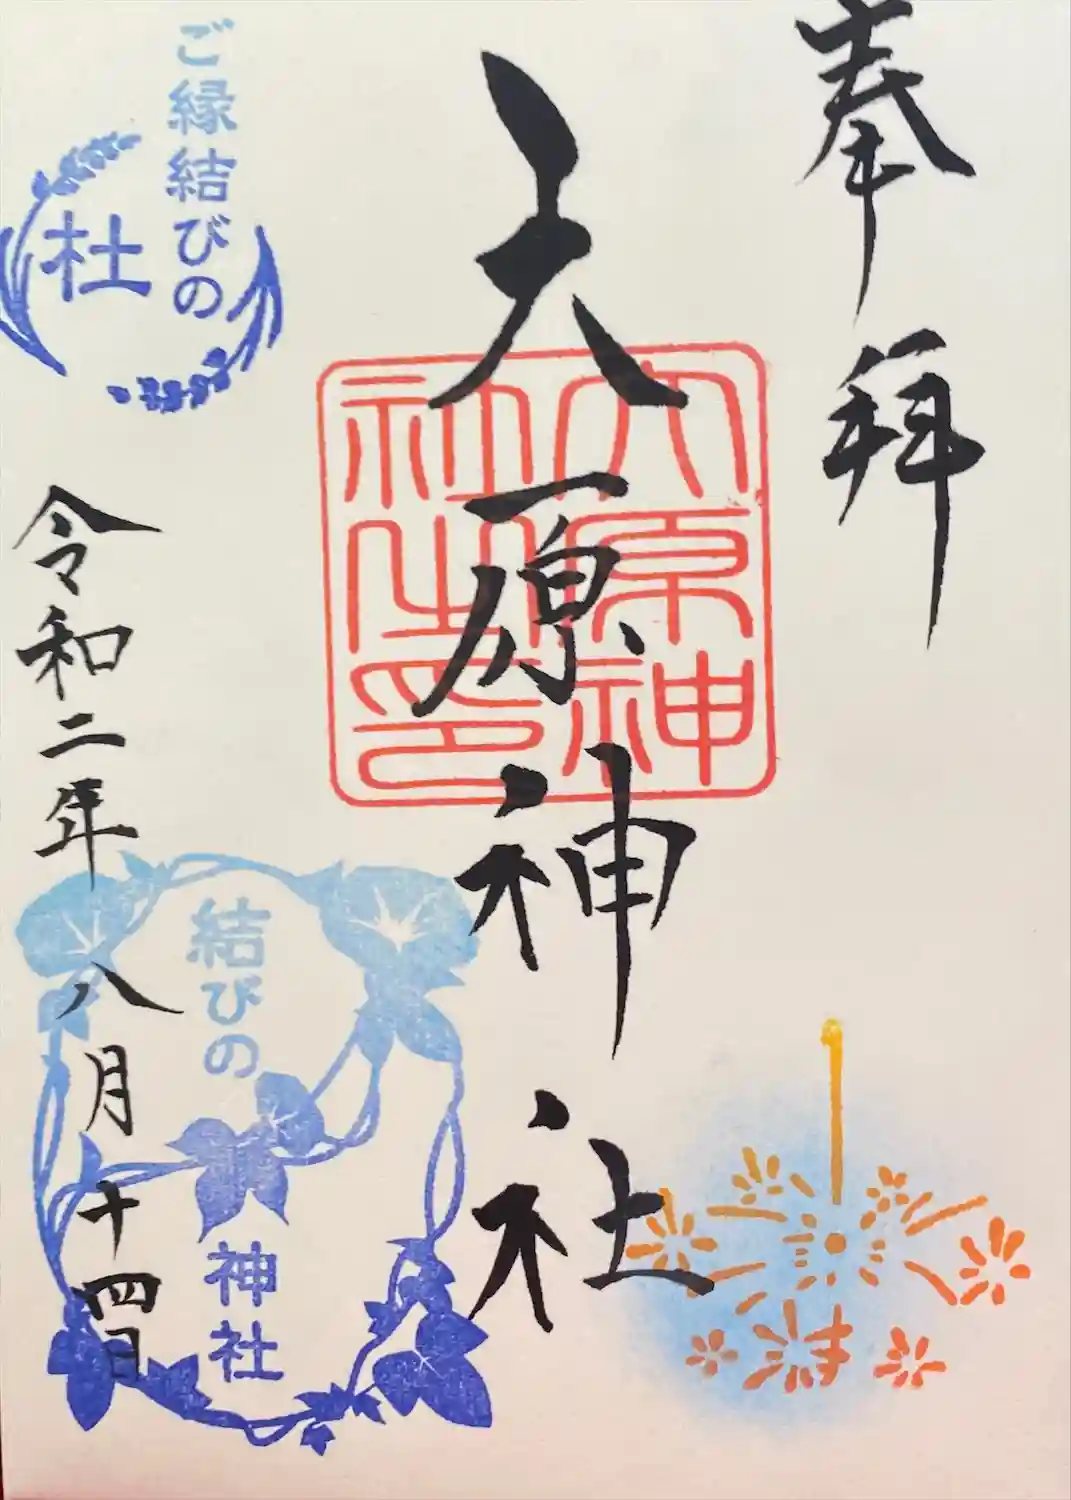 奉拝
大原神社
大原神
社之印
ご縁結びの
杜
令和二年八月十四日
結びの
神社